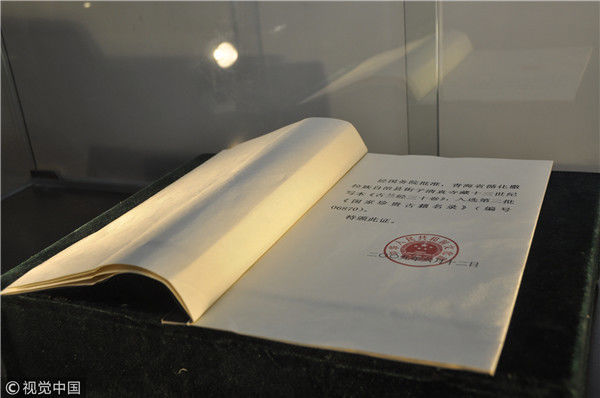 经国务院批准，青海省循化撒
拉族自治县街子清真寺藏十三世纪
写本《古兰经三十卷》，入选第二批
《国家珍贵古籍名录》（编号
06870）。
特颁此证。
中华人民共和国
十二日
© 视觉中国